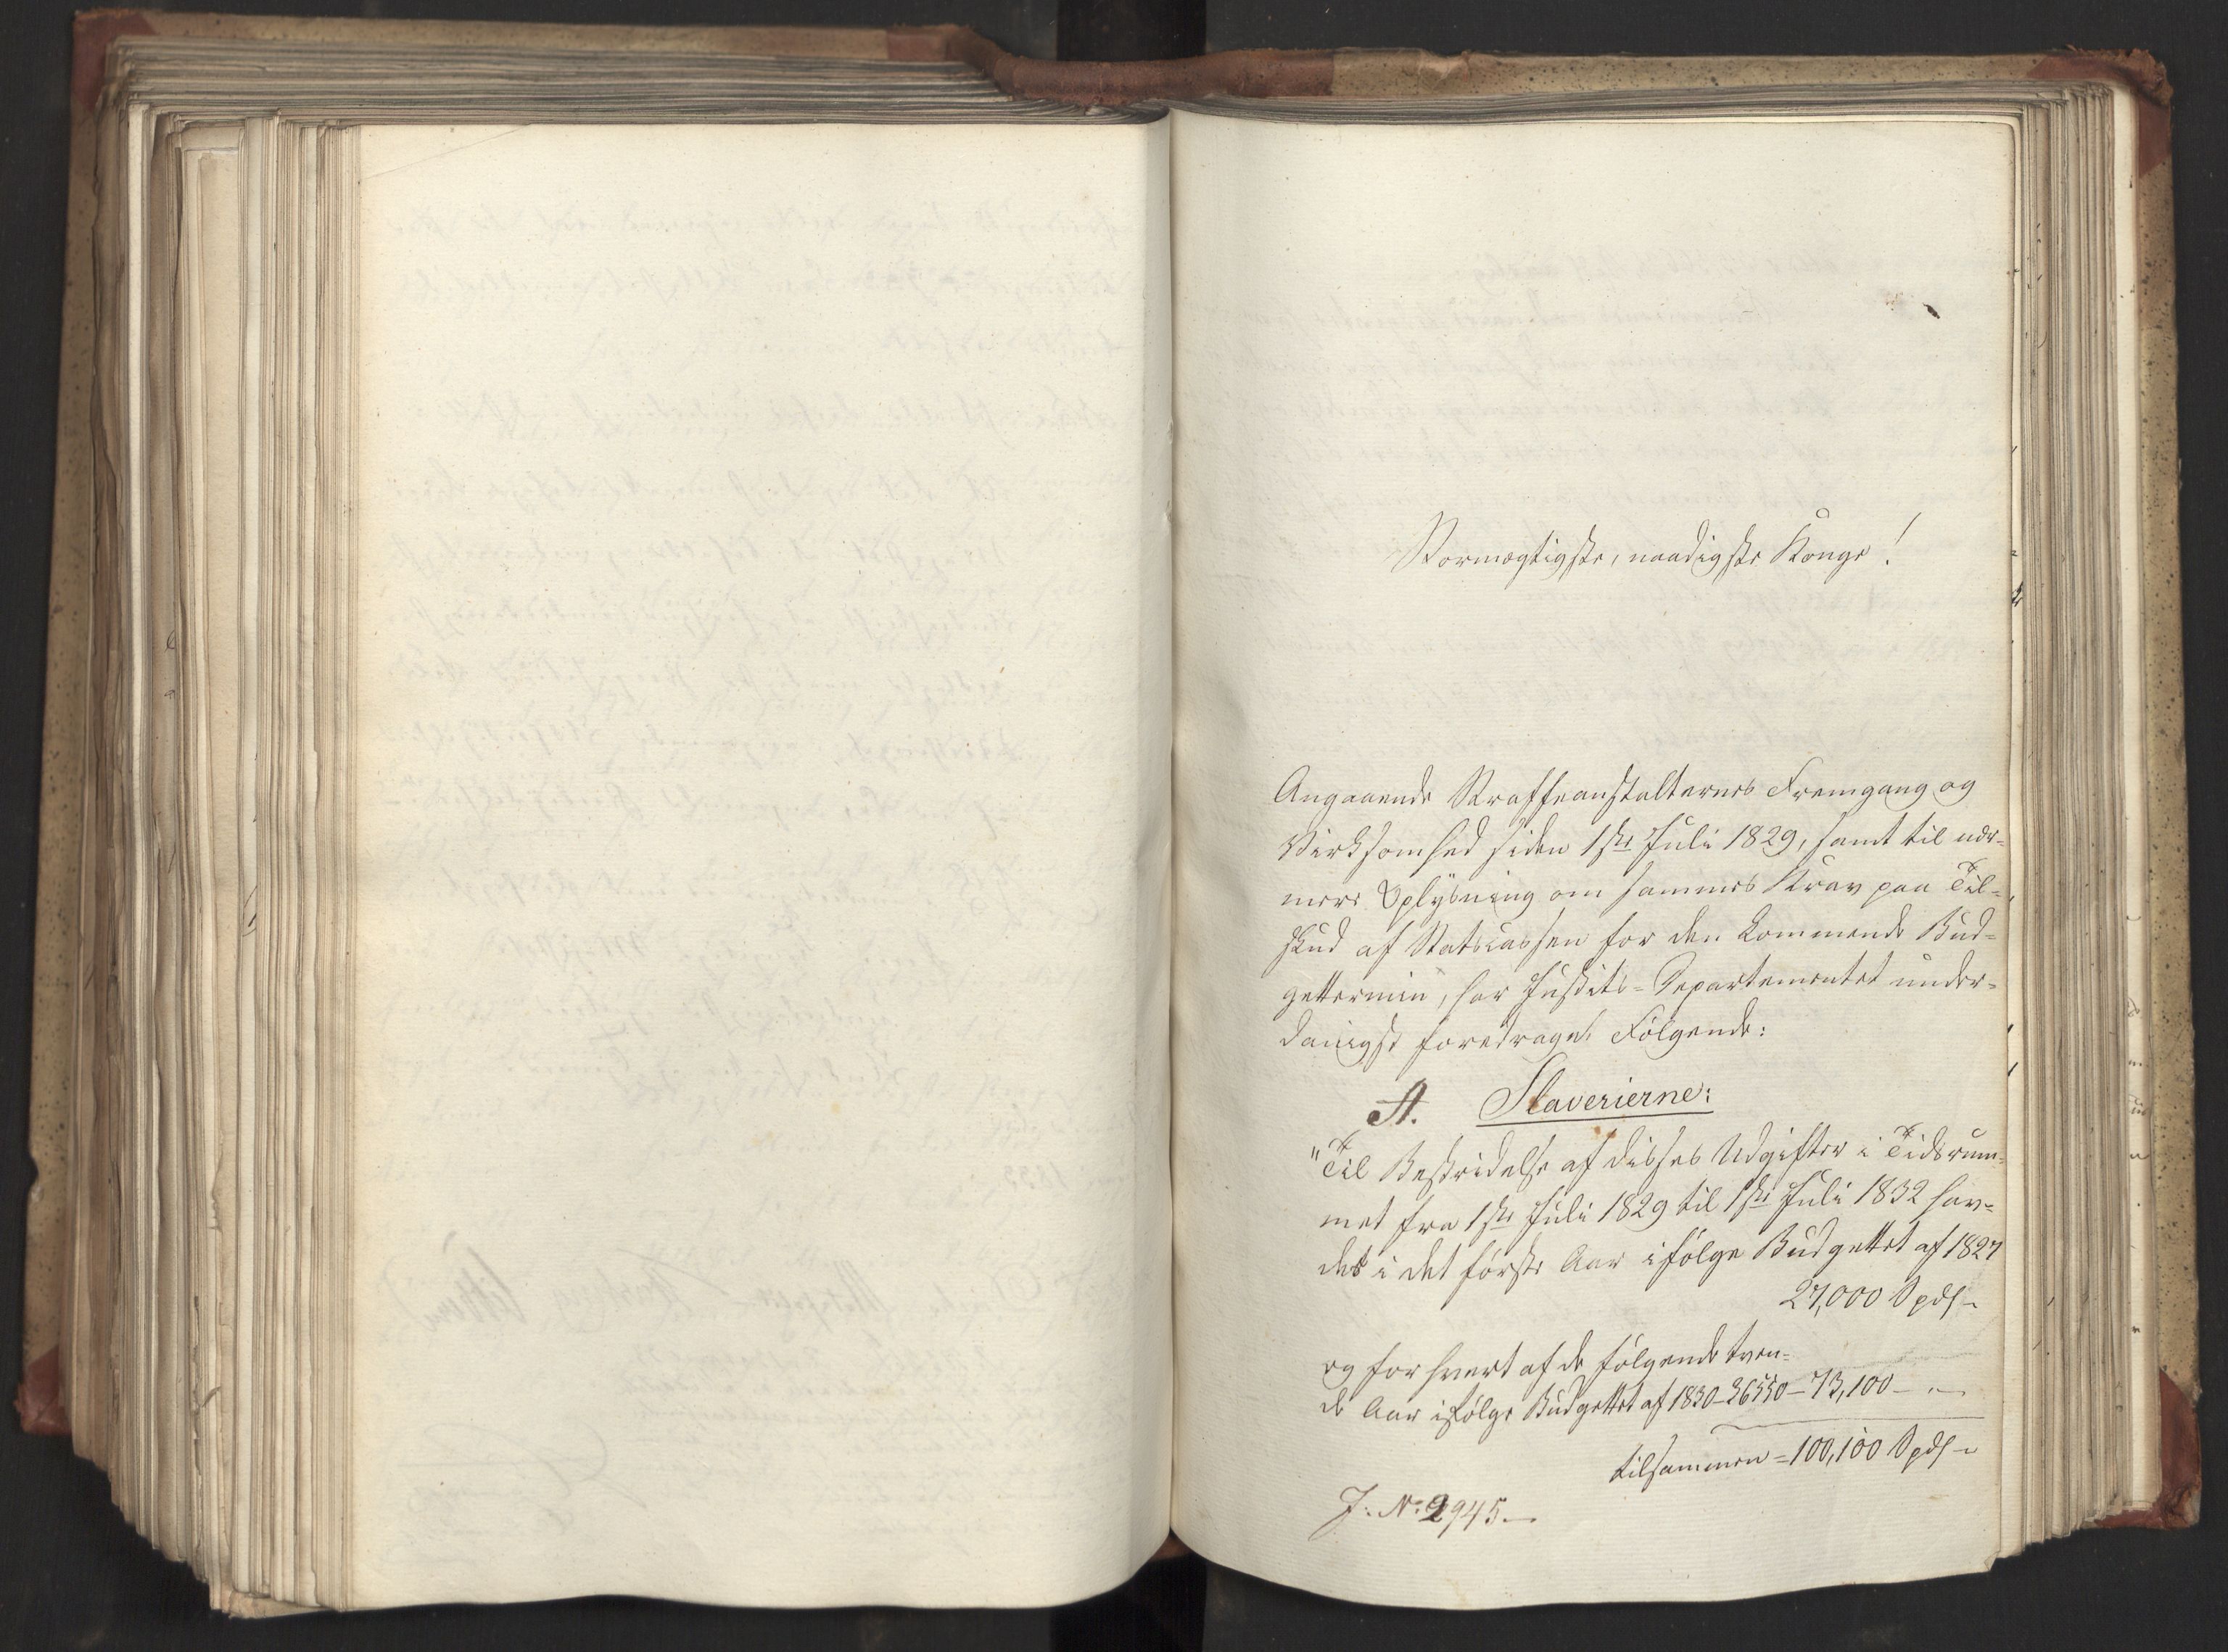 Stormægtigste, naadigste Konge!
Angaaende Straffeanstalternes Fremgang og
Virksomhed siden 1ste Juli 1829, samt til nær-
mere Oplysning om sammes Krav paa Til-
skud af Statscassen for den kommende Bud-
gettermin, har Justits-Departementet under-
danigst foredraget Følgende:
A. Slaverierne:
"Til Bestridelse af disses Udgifter i Tidsrum-
met fra 1ste Juli 1829 til 1ste Juli 1832 hav-
des i det første Aar ifølge Budgettet af 1827
27,000 Spds
og for hvert af de følgende tven-
de Aar ifølge Budgettet af 1830 - 36550 - 73,100 - "
tilsammen = 100,100 Spds
J: No: 2945.